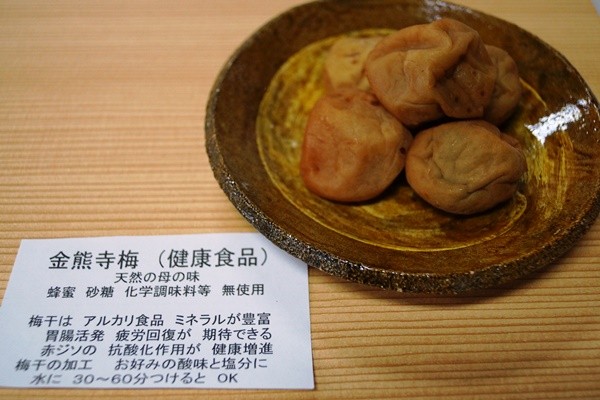 金熊寺梅 （健康食品）
天然の母の味
蜂蜜 砂糖 化学調味料等 無使用
梅干は アルカリ食品 ミネラルが豊富
胃腸活発 疲労回復が 期待できる
赤ジソの 抗酸化作用が 健康増進
梅干の加工 お好みの酸味と塩分に
水に 30〜60分つけると OK